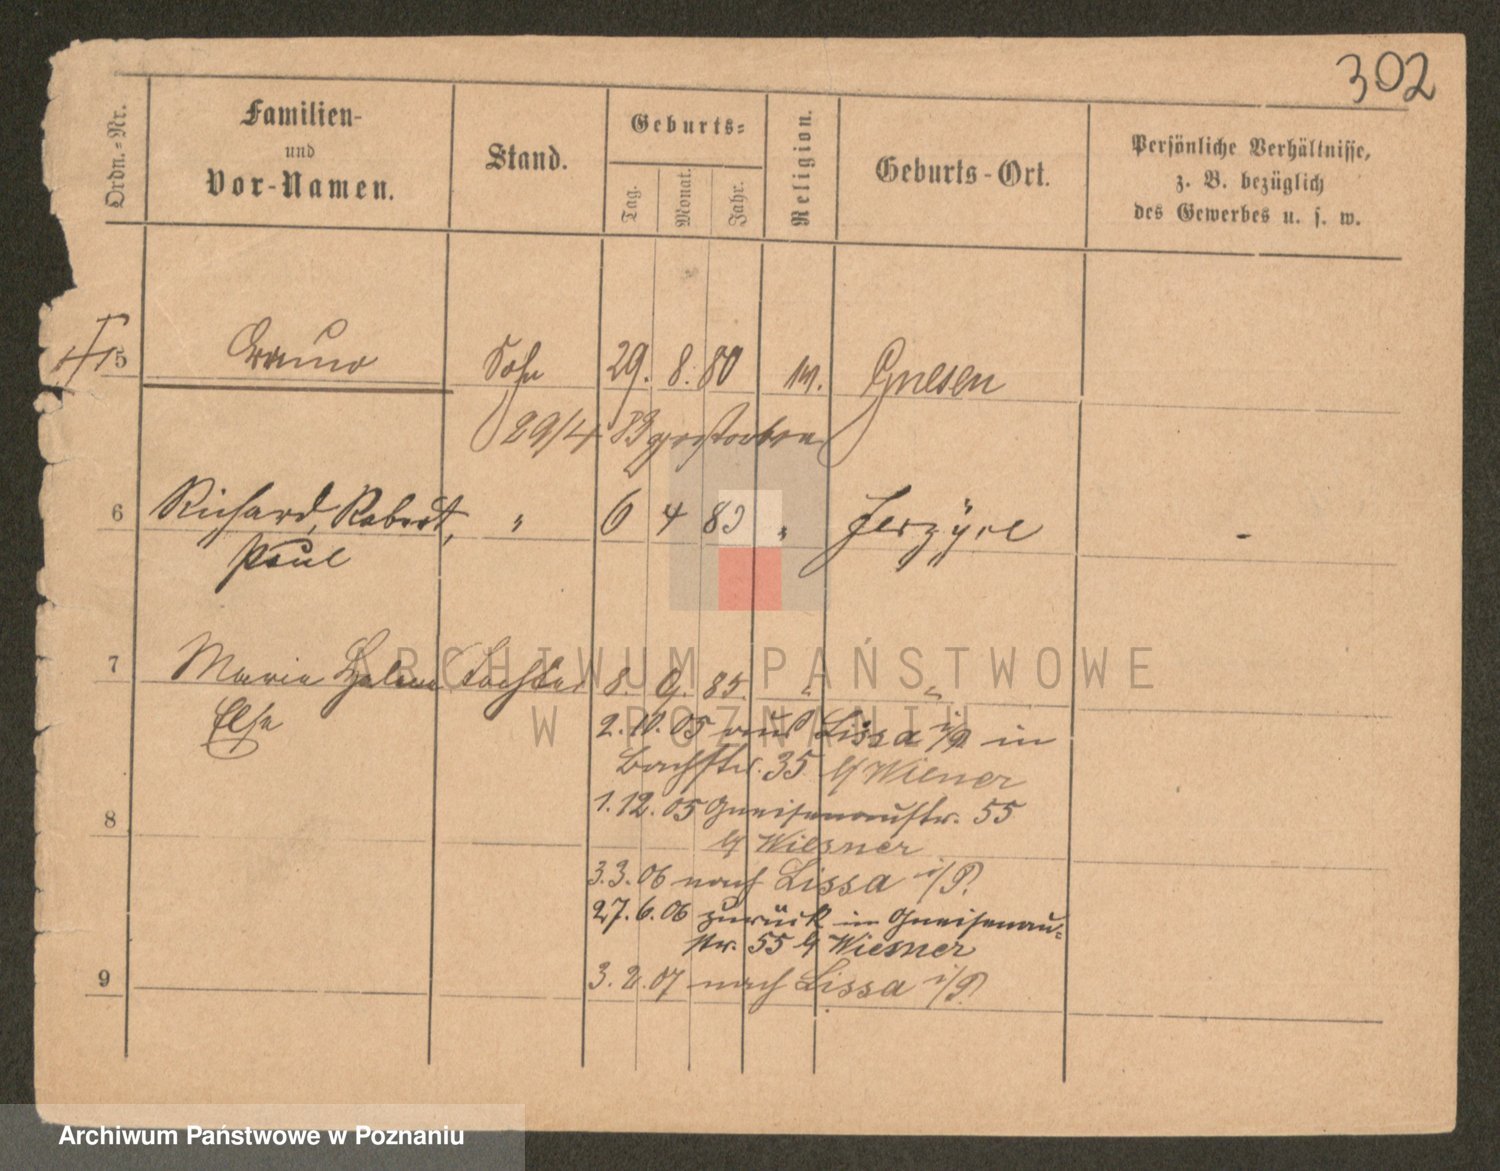 302
Ordn.-Nr.
Familien-
und
Vor-Namen.
Stand.
Geburts-
Tag.
Monat.
Jahr.
Religion.
Geburts-Ort.
Persönliche Verhältnisse,
z. B. bezüglich
des Gewerbes u. s. w.
5 Bruno Sohn 29. 8. 80 Gnesen
29/4 83 gestorben
6 Richard, Robert, " 6 4 83 " Jerzyce -
Paul
7 Marie Helene Tochter 8. 9. 85. " "
Else
2.10.05 aus Lissa i/P in
Bachstr. 35 b/ Wiesner
8
1.12.05 Gneisenaustr. 55
b/ Wiesner
3.3.06 nach Lissa i/P.
27.6.06 zurück in Gneisenau-
str. 55 b/ Wiesner
9
3.2.07 nach Lissa i/P.
ARCHIWUM PAŃSTWOWE
W POZNANIU
Archiwum Państwowe w Poznaniu